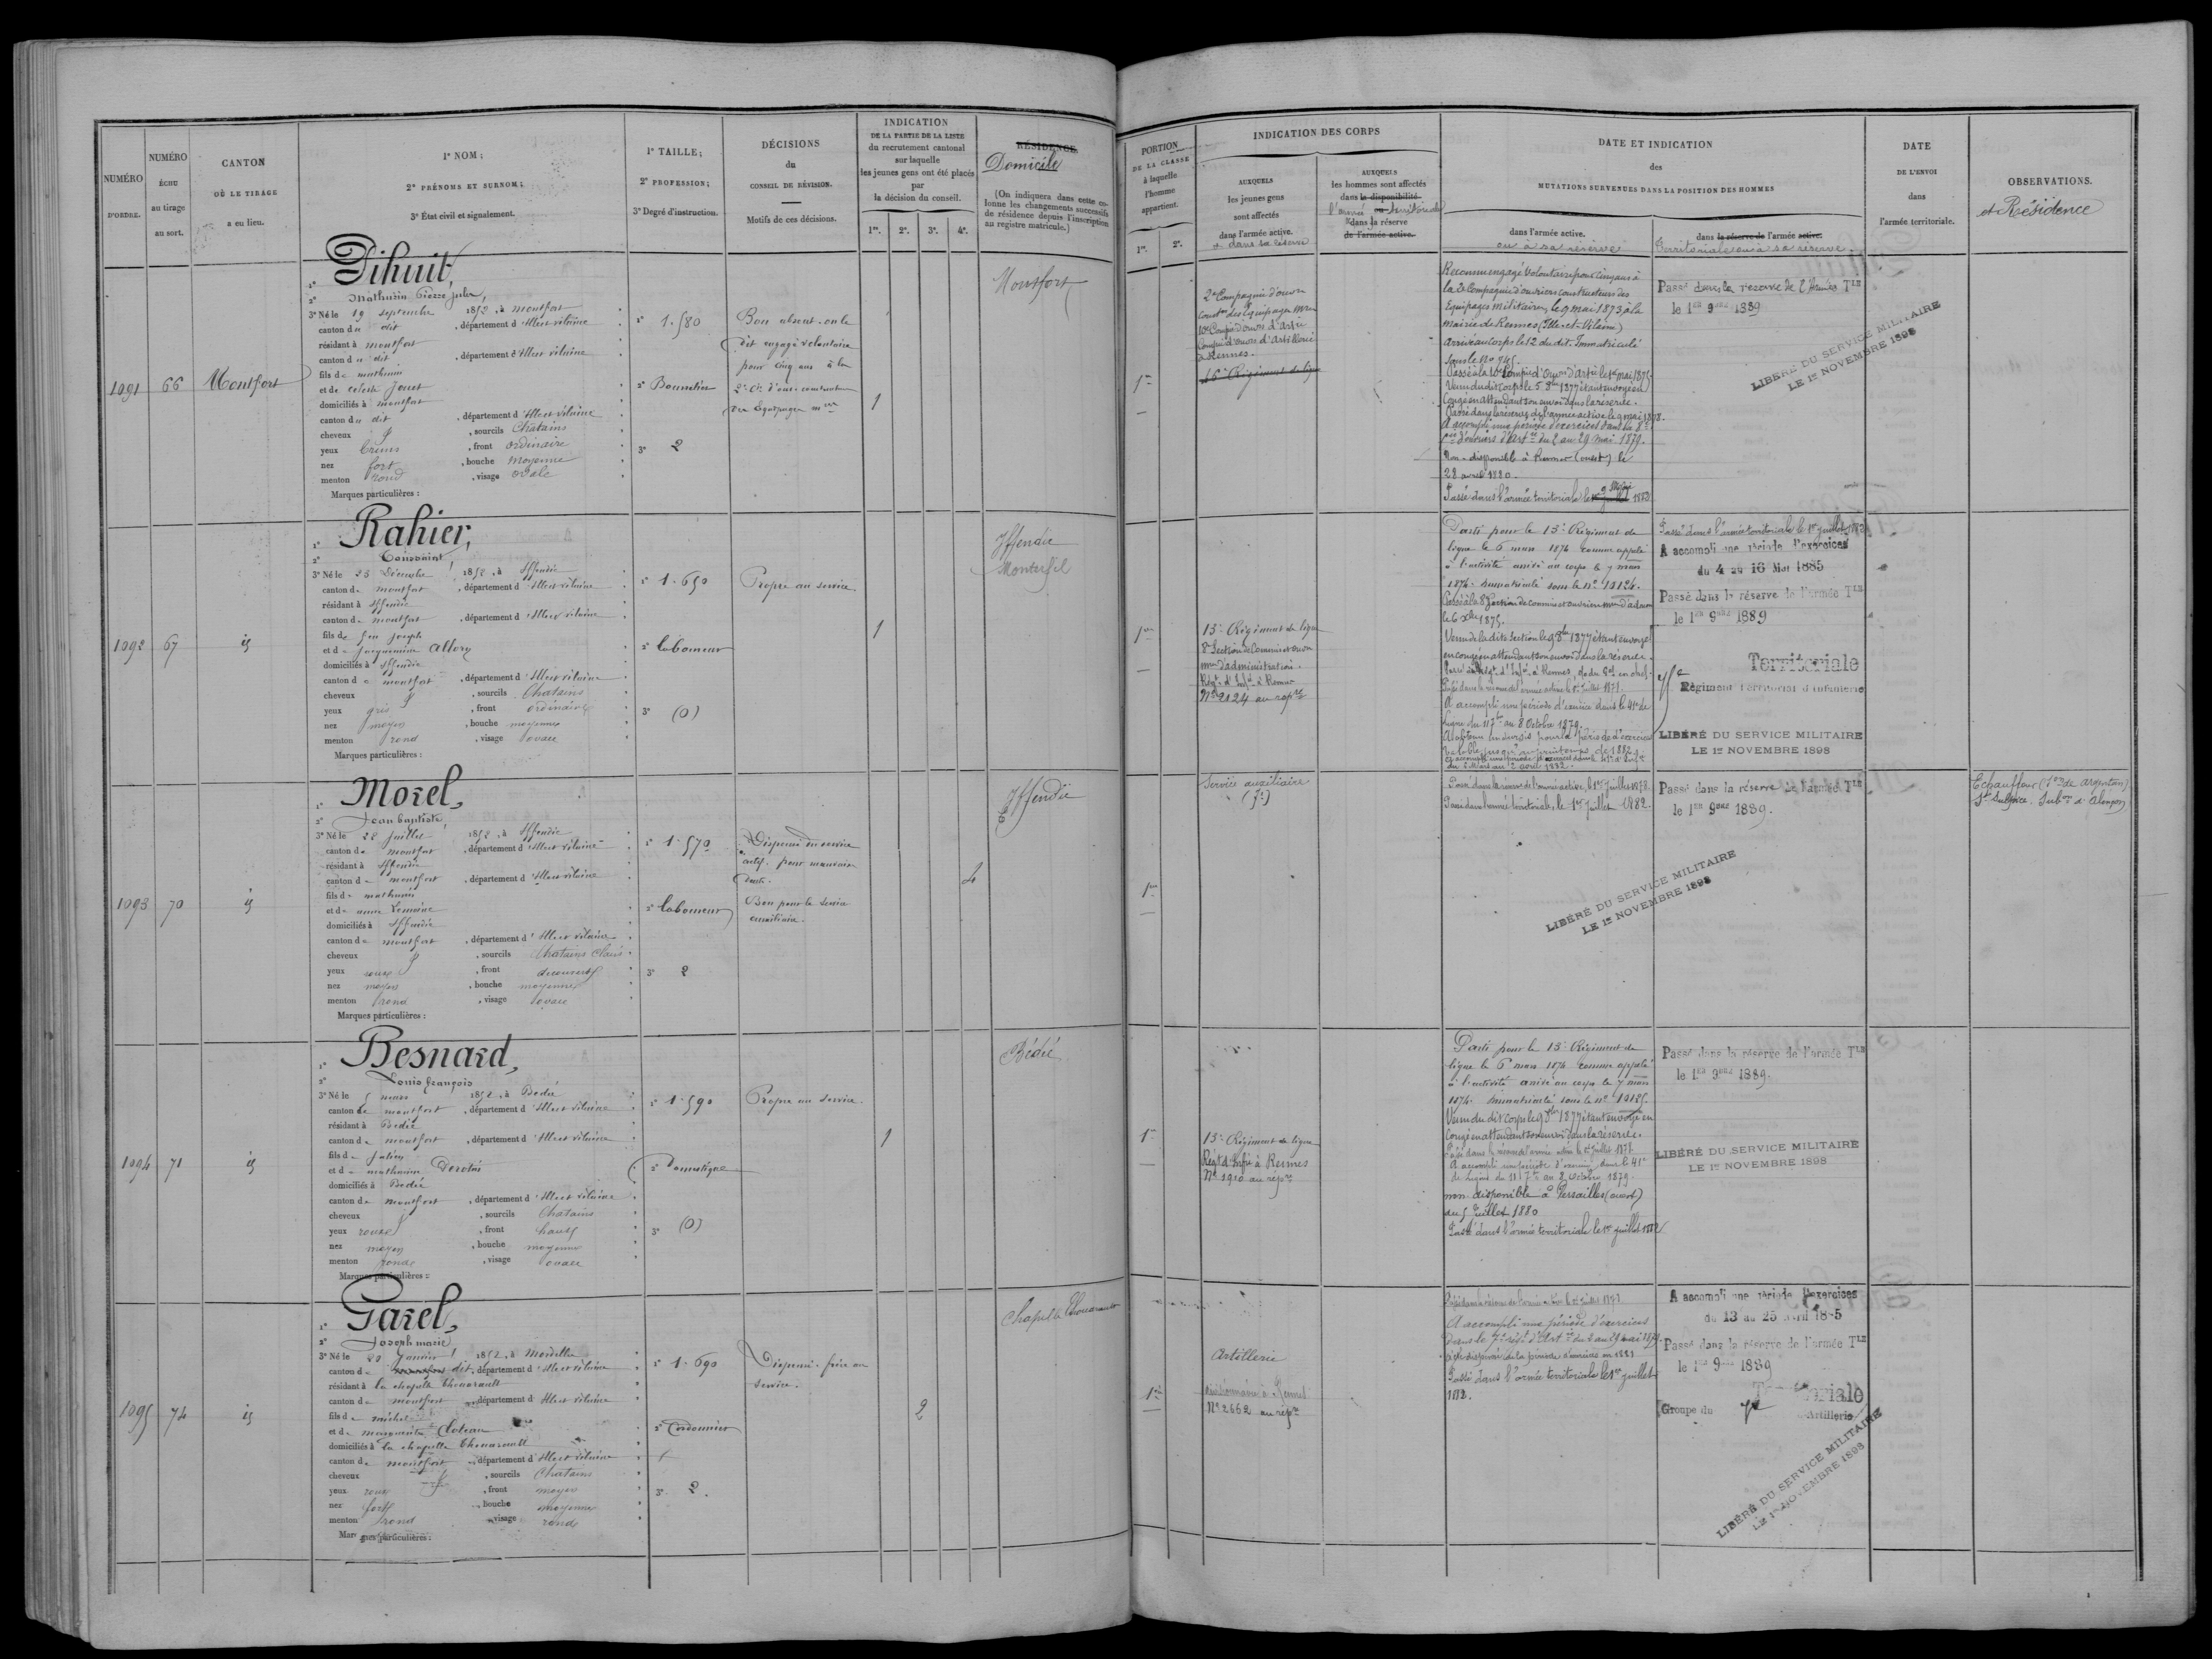 NUMÉRO D'ORDRE.
NUMÉRO ÉCHU au tirage au sort.
CANTON OÙ LE TIRAGE a eu lieu.
1° NOM;
2° PRÉNOMS ET SURNOM;
3° État civil et signalement.
1° TAILLE;
2° PROFESSION;
3° Degré d'instruction.
DÉCISIONS du CONSEIL DE RÉVISION.
Motifs de ces décisions.
INDICATION DE LA PARTIE DE LA LISTE du recrutement cantonal sur laquelle les jeunes gens ont été placés par la décision du conseil.
1re. 2e. 3e. 4e.
RÉSIDENCE.
Domicile
(On indiquera dans cette colonne les changements successifs de résidence depuis l'inscription au registre matricule.)
PORTION DE LA CLASSE à laquelle l'homme appartient.
1re. 2e.
INDICATION DES CORPS
AUXQUELS les jeunes gens sont affectés dans l'armée active.
et dans sa réserve
AUXQUELS les hommes sont affectés dans la disponibilité ou
l'armée territoriale
dans la réserve de l'armée active.
DATE ET INDICATION des MUTATIONS SURVENUES DANS LA POSITION DES HOMMES
dans l'armée active.
ou à sa réserve
dans la réserve de l'armée active.
Territoriale ou à sa réserve.
DATE DE L'ENVOI dans l'armée territoriale.
OBSERVATIONS.
et Résidence
1091
66
Montfort
1° Dihuit,
2° Mathurin Pierre Jules,
3° Né le 19 septembre 1852, à Montfort
canton du dit, département d'Ille et vilaine
résidant à montfort
canton du dit, département d'Ille et vilaine
fils de mathurin
et de celeste Jouet
domiciliés à montfort
canton du dit, département d'Ille et vilaine
cheveux, sourcils Châtains
yeux, front ordinaire
nez fort, bouche moyenne
menton rond, visage ovale
Marques particulières :
1° 1.580
2° Bourrelier
3° 2
Bon absent. on le
dit engagé volontaire
pour cinq ans à la
2e Cie d'ouv. constructeurs
des équipages mres
1
Montfort
1re
2e Compagnie d'ouvr
constrs des équipages Mres
10e Compie d'ouvrs d'Artie
Compie d'ouvrs d'Artillerie
à Rennes.
Reconnu engagé volontaire pour cinq ans à
la 2e Compagnie d'ouvriers constructeurs des
Equipages militaires le 9 mai 1873 à la
mairie de Rennes (Ille-et-Vilaine)
Arrivé au corps le 12 du dit. Immatriculé
sous le No 945.
Passé à la 10e Compie d'Ouvrs d'Artie le 1er mai 1875.
Venu du dit corps le 5 8bre 1877 étant envoyé en
Congé en attendant son envoi dans la réserve.
Passé dans la réserve de l'armée active le 9 mai 1878.
A accompli une période d'exercices dans la 8e
Cie d'ouvriers d'Artie du 2 au 29 mai 1879.
Non-disponible à Rennes (ouest) le
28 avril 1880.
Passé dans l'armée territoriale le 9 Mai 1882
Passé dans la réserve de l'Armée Tle
le 1er 9bre 1889
LIBÉRÉ DU SERVICE MILITAIRE
LE 1er NOVEMBRE 1898
1092
67
id
1° Rahier,
2° Toussaint,
3° Né le 23 Décembre 1852, à Iffendic
canton de montfort, département d'Ille et vilaine
résidant à Iffendic
canton de montfort, département d'Ille et vilaine
fils de feu joseph
et de jacquemine Allory
domiciliés à Iffendic
canton de montfort, département d'Ille et vilaine
cheveux, sourcils Chatains
yeux gris, front ordinaire
nez moyen, bouche moyenne
menton rond, visage ovale
Marques particulières :
1° 1.650
2° laboureur
3° (0)
Propre au service
1
Iffendic
Monterfil
1re
13e Régiment de ligne
8e Section de Commis et ouvrs
mres d'administration.
Régt d'Infie à Rennes
No 2124 au repre
Parti pour le 13e Régiment de
ligne le 6 mars 1874 comme appelé
à l'activité arrivé au corps le 7 mars
1874. Immatriculé sous le No 10124.
Passé à la 8e Section de commis et ouvriers mres d'adon
le 6 Xbre 1875.
Venu de la dite section le 9 8bre 1877 étant envoyé
en congé en attendant son envoi dans la réserve.
Passé dans la réserve de l'armée active le 1er juillet 1878.
A accompli une période d'exercice dans le 41e de
Ligne du 11 7bre au 8 Octobre 1879.
A obtenu un sursis pour la période d'exercices
valable jusqu'au printemps de 1882
Passé dans l'armée territoriale le 1er juillet 1882
A accompli une période d'exercices
du 4 au 16 Mai 1885
Passé dans la réserve de l'armée Tle
le 1er 9bre 1889
Territoriale
Régiment Territorial d'infanterie
LIBÉRÉ DU SERVICE MILITAIRE
LE 1er NOVEMBRE 1898
1093
70
id
1° Morel,
2° Jean baptiste,
3° Né le 22 juillet 1852, à Iffendic
canton de montfort, département d'Ille et vilaine
résidant à Iffendic
canton de montfort, département d'Ille et vilaine
fils de mathurin
et de anne Lemoine
domiciliés à Iffendic
canton de montfort, département d'Ille et vilaine
cheveux, sourcils Chatains Clairs
yeux roux, front découvert
nez moyen, bouche moyenne
menton rond, visage ovale
Marques particulières :
1° 1.570
2° laboureur
3° 2
Dispensé du service
actif. pour mauvaise
dents.
Bon pour le service
auxiliaire.
4
Iffendic
1re
Service auxiliaire
Passé dans la réserve de l'armée active, le 1er juillet 1878.
Passé dans l'armée territoriale, le 1er Juillet 1882.
Passé dans la réserve de l'armée Tle
le 1er 9bre 1889.
LIBÉRÉ DU SERVICE MILITAIRE
LE 1er NOVEMBRE 1898
Echauffour (Son de Argentan)
St Sulpice. Subon d'Alençon
1094
71
id
1° Besnard,
2° Louis françois
3° Né le 5 mars 1852, à Bedée
canton de montfort, département d'Ille et vilaine
résidant à Bedée
canton de montfort, département d'Ille et vilaine
fils de Julien
et de mathurine
domiciliés à Bedée
canton de montfort, département d'Ille et vilaine
cheveux, sourcils Chatains
yeux roux, front haut
nez moyen, bouche moyenne
menton rond, visage ovale
Marques particulières :
1° 1.590
2° Domestique
3° (0)
Propre au service.
1
Bédée
1re
13e Régiment de ligne
Régt d'Infie à Rennes
No 1910 au repre
Parti pour le 13e Régiment de
ligne le 6 mars 1874 comme appelé
à l'activité arrivé au corps le 7 mars
1874. Immatriculé sous le No 10125.
Venu du dit corps le 9 8bre 1877 étant envoyé en
Congé en attendant son envoi dans la réserve.
Passé dans la réserve de l'armée active le 1er juillet 1878.
A accompli une période d'exercice dans le 41e
de Ligne du 11 7bre au 8 octobre 1879.
non disponible à Versailles (ouest)
du 5 Juillet 1880
Passé dans l'armée territoriale le 1er juillet 1882
Passé dans la réserve de l'armée Tle
le 1er 9bre 1889.
LIBÉRÉ DU SERVICE MILITAIRE
LE 1er NOVEMBRE 1898
1095
74
id
1° Garel,
2° Joseph marie,
3° Né le 20 Janvier 1852, à Mordelles
canton de dit, département d'Ille et vilaine
résidant à la chapelle thouarault
canton de montfort, département d'Ille et vilaine
fils de michel
et de marguerite
domiciliés à la chapelle thouarault
canton de montfort, département d'Ille et vilaine
cheveux, sourcils Chatains
yeux roux, front moyen
nez fort, bouche moyenne
menton rond, visage rond
Marques particulières :
1° 1.690
2° Cordonnier
3° 2.
Dispensé. frère au
service.
2
Chapelle Thouarault
1re
Artillerie
No 2662 au repre
Passé dans la réserve de l'armée active le 1er juillet 1878
A accompli une période d'exercices
dans le 7e régt d'Artie du 2 au 29 mai 1879.
a été dispensé de la période d'exercices en 1881
Passé dans l'armée territoriale le 1er juillet
1882.
A accompli une période d'exercices
du 13 au 25 avril 1885
Passé dans la réserve de l'armée Tle
le 1er 9bre 1889
Territoriale
Groupe du
Artillerie
LIBÉRÉ DU SERVICE MILITAIRE
LE 1er NOVEMBRE 1898